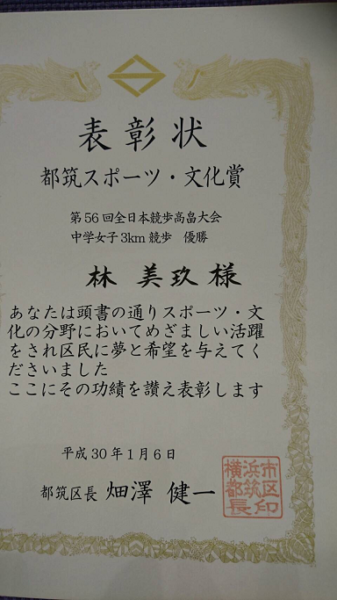 表彰状
都筑スポーツ・文化賞
第56回全日本競歩高畠大会
中学女子3km競歩 優勝
林 美玖 様
あなたは頭書の通りスポーツ・文
化の分野においてめざましい活躍
をされ区民に夢と希望を与えてく
ださいました
ここにその功績を讃え表彰します
平成30年1月6日
都筑区長 畑澤 健一
横浜市
都筑区
長印